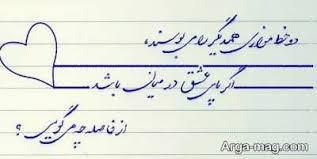 دو خط موازی همدیگر را می بوسند،
اگر پای عشق در میان باشد
از فاصله چه می گویی ؟
Arga-mag.com